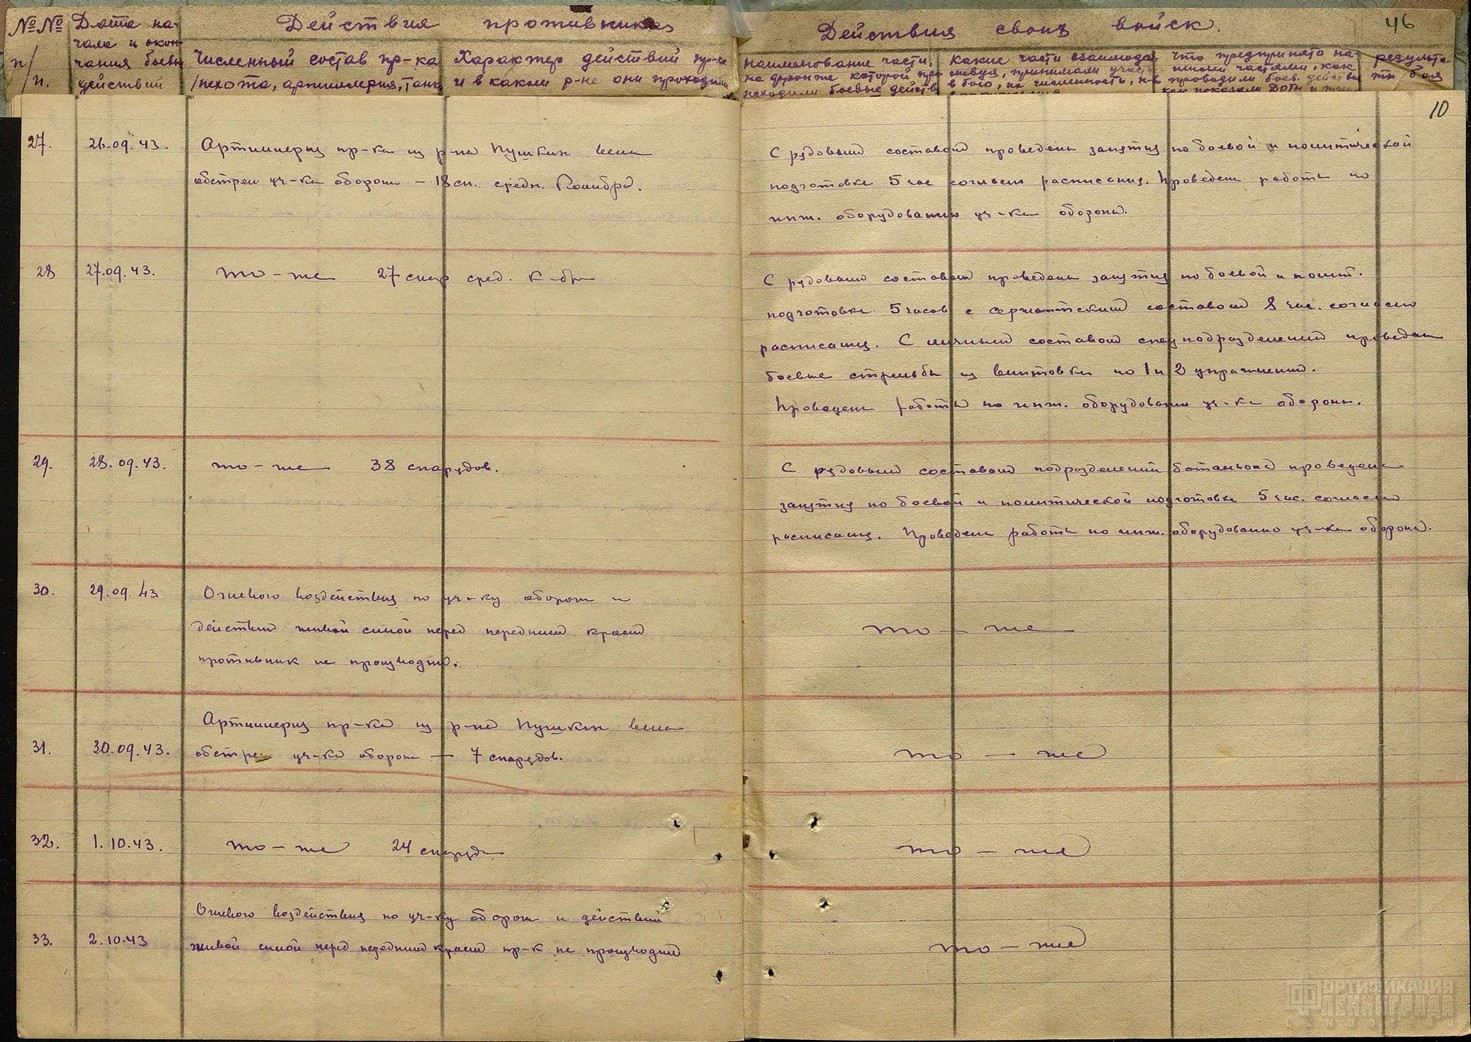 №№ п/п.
Дата на-
чала и окон-
чания боевы
действий
Действия противника
Численный состав пр-ка
/пехота, артиллерия, танк
Характер действий пр-ка
и в каком р-не они проходили
Действия своих войск.
46
наименование части,
на фронте которой про
исходили боевые действ
какие части взаимодей
ствуя, принимали участ
в бою, их численность, на
что предпринято на-
шими частями, как
проводили боев. действ
как показали ДОТы и
результа-
ты боя
10
27. 26.09.43. Артиллерия пр-ка из р-на Пушкин вела
обстрел уч-ка обороны – 18 сн. средн. калибра.
С рядовым составом проведены занятия по боевой и политической
подготовке 5 час согласно расписания. Проведены работы по
инж. оборудованию уч-ка обороны.
28 27.09.43. то-же 27 снар сред. к-бра
С рядовым составом проведены занятия по боевой и полит.
подготовке 5 часов с сержантским составом 8 час. согласно
расписания. С личным составом спец подразделений проведены
боевые стрельбы из винтовки по 1 и 2 упражнений.
Проведены работы по инж. оборудованию уч-ка обороны.
29. 28.09.43. то-же 38 снарядов.
С рядовым составом подразделений батальона проведены
занятия по боевой и политической подготовке 5 час. согласно
расписания. Проведены работы по инж. оборудованию уч-ка обороны.
30. 29.09.43 Огневого воздействия по уч-ку обороны и
действий живой силой перед передним краем
противник не производил.
то – же
31. 30.09.43. Артиллерия пр-ка из р-на Пушкин вела
обстрел уч-ка обороны – 7 снарядов.
то – же
32. 1.10.43. то-же 24 снаряда
то – же
33. 2.10.43 Огневого воздействия по уч-ку обороны и действий
живой силой перед передним краем пр-к не производил
то – же
ФОРТИФИКАЦИЯ
ЛЕНИНГРАДА